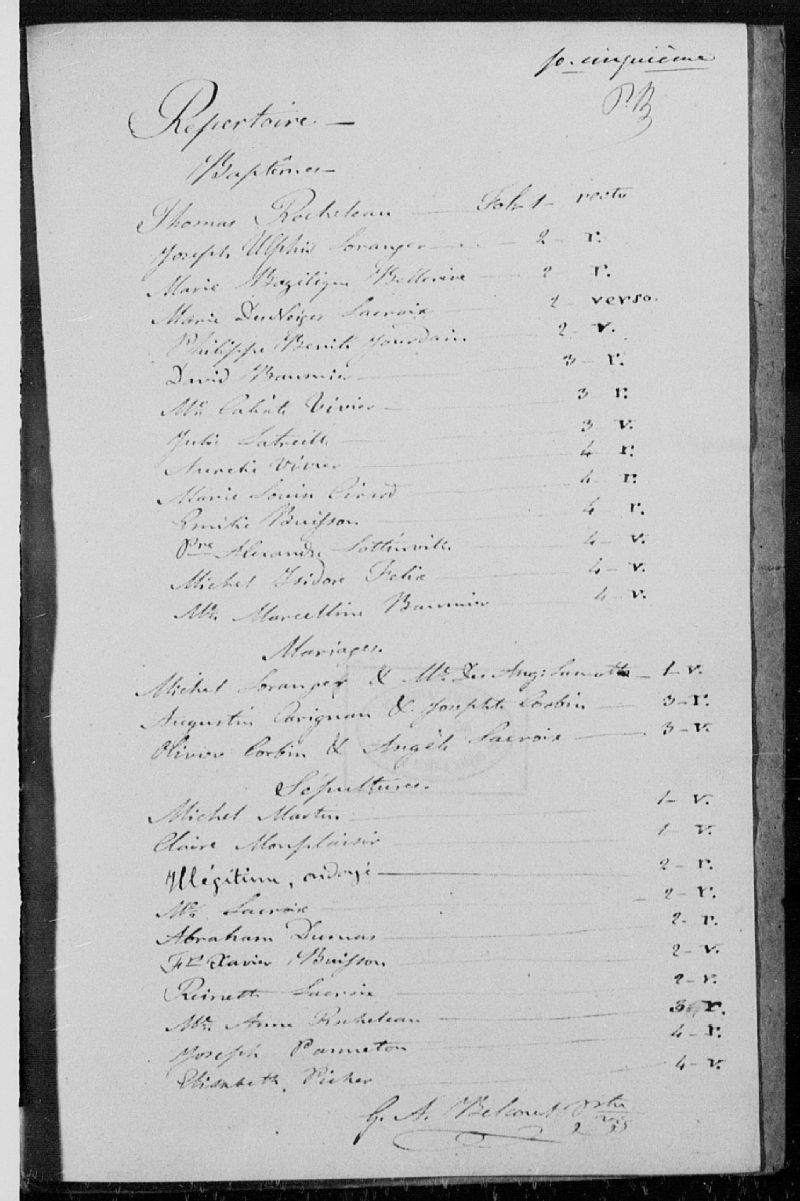 fo. cinquième
P.B.
Répertoire. —
Baptêmes —
Thomas Rocheleau — Fol. 1 — recto
Joseph Ulphis Loranger — 2 — r.
Marie Bazilique Bellerive — 2 r.
Marie DesNeiges Lacroix — 2 — verso.
Philippe Benili Jourdain — 2 — v.
David Baumier — 3 — r.
Mie Vivier — 3 r.
Julie Latreille — 3 v.
Aurelie Vivier — 4 — r.
Marie Louise Girard — 4 — r.
Emilie Buisson — 4 — r.
Pre Alexandre Lottinville — 4 — v.
Michel Isidore Felix — 4 — v.
Mie Marcelline Baumier — 4 — v.
Mariages.
Michel Loranger & Mie Des Ang: Lamotte — 1 — v.
Augustin Carignan & Josephte Corbin — 3 — r.
Olivier Corbin & Angèle Lacroix — 3 — v.
Sépultures.
Michel Martin — 1 — v.
Claire Monplaisir — 1 — v.
Illégitime, ondoyé — 2 — r.
Mie Lacroix — 2 — r.
Abraham Dumas — 2 — r.
Frs Xavier Buisson — 2 — v.
Reinette Lacroix — 2 — v.
Mie Anne Rocheleau — 3 r.
Joseph Panneton — 4 — r.
Elisabeth Picher — 4 — v.
G. A. Belcourt Ptre